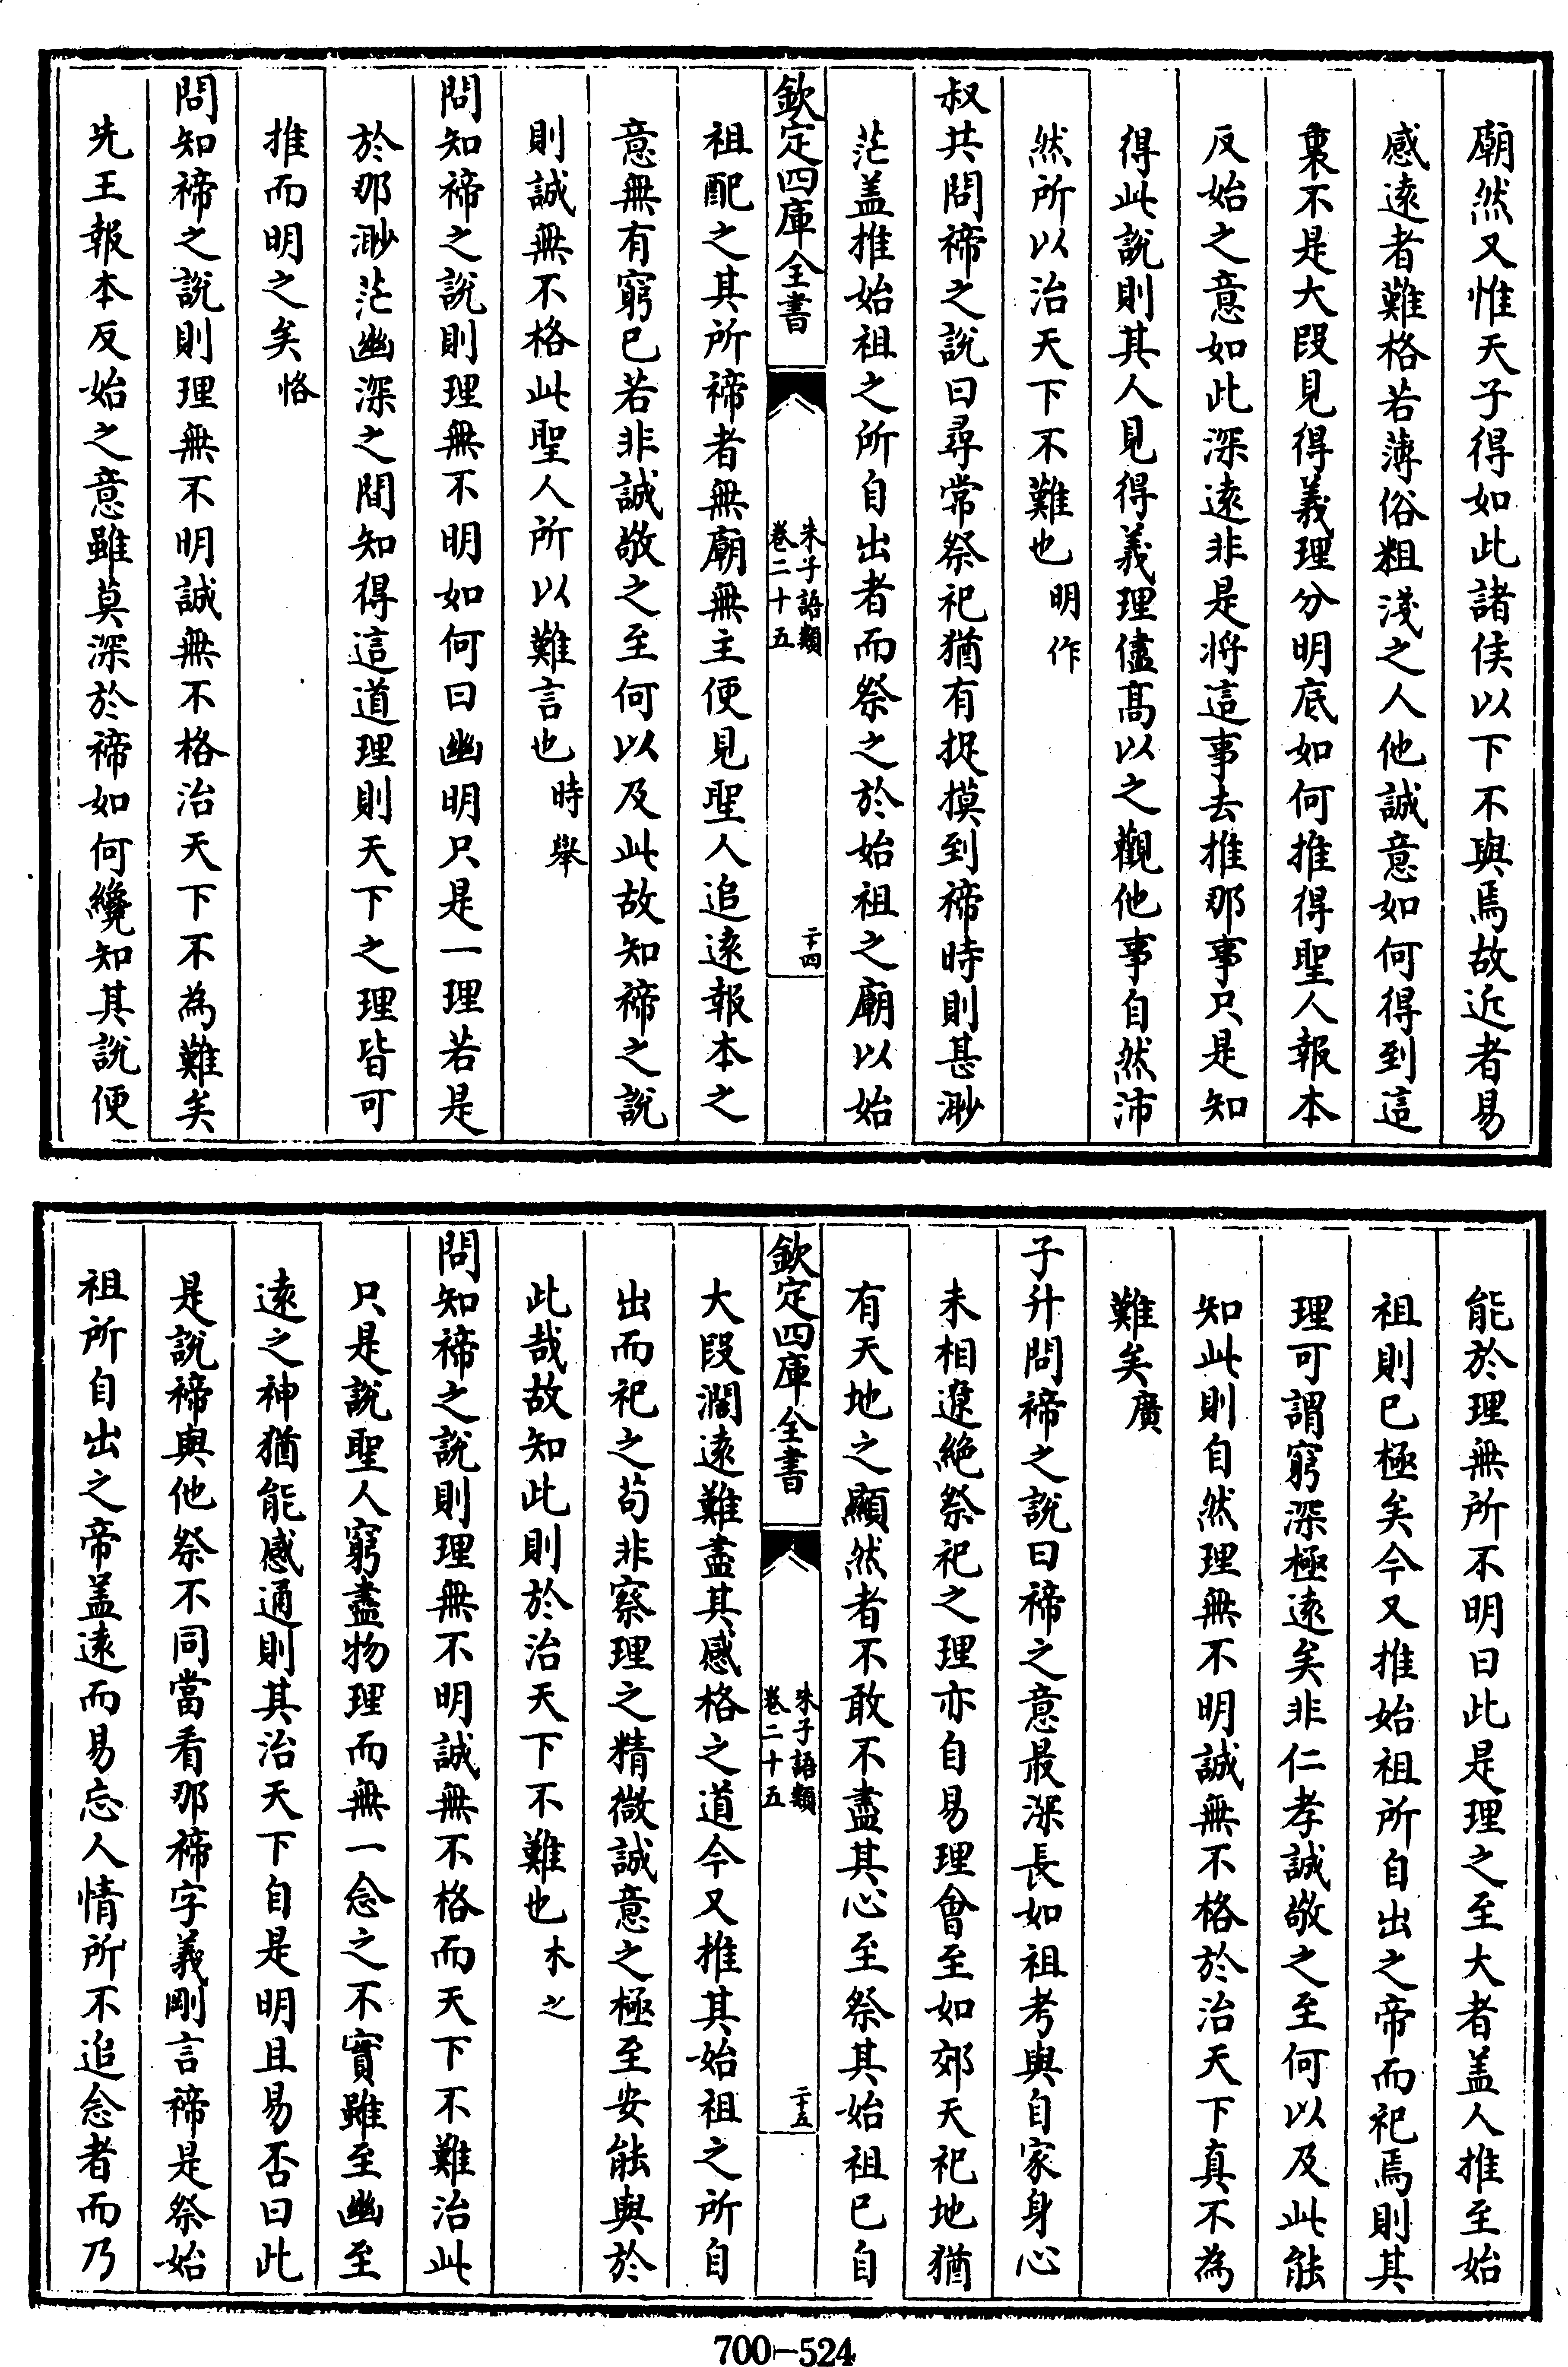 廟然又惟天子得如此諸侯以下不與焉故近者易
感遠者難格若薄俗粗淺之人他誠意如何得到這
裏不是大段見得義理分明底如何推得聖人報本
反始之意如此深遠非是将這事去推那事只是知
得此說則其人見得義理儘髙以之觀他事自然沛
然所以治天下不難也明作
叔共問禘之說曰尋常祭祀猶有捉摸到禘時則甚渺
茫盖推始祖之所自出者而祭之於始祖之廟以始
欽定四庫全書
朱子語類
卷二十五
二十四
祖配之其所禘者無廟無主便見聖人追遠報本之
意無有窮已若非誠敬之至何以及此故知禘之說
則誠無不格此聖人所以難言也時舉
問知禘之說則理無不明如何曰幽明只是一理若是
於那渺茫幽深之間知得這道理則天下之理皆可
推而明之矣恪
問知禘之說則理無不明誠無不格治天下不為難矣
先王報本反始之意雖莫深於禘如何纔知其說便
能於理無所不明曰此是理之至大者盖人推至始
祖則已極矣今又推始祖所自出之帝而祀焉則其
理可謂窮深極遠矣非仁孝誠敬之至何以及此能
知此則自然理無不明誠無不格於治天下真不為
難矣廣
子升問禘之說曰禘之意最深長如祖考與自家身心
未相遼絶祭祀之理亦自易理㑹至如郊天祀地猶
有天地之顯然者不敢不盡其心至祭其始祖已自
欽定四庫全書
朱子語類
卷二十五
二十五
大段濶遠難盡其感格之道今又推其始祖之所自
出而祀之茍非察理之精微誠意之極至安能與於
此哉故知此則於治天下不難也木之
問知禘之說則理無不明誠無不格而天下不難治此
只是說聖人窮盡物理而無一念之不實雖至幽至
遠之神猶能感通則其治天下自是明且易否曰此
是說禘與他祭不同當看那禘字義剛言禘是祭始
祖所自出之帝盖遠而易忘人情所不追念者而乃
700-524